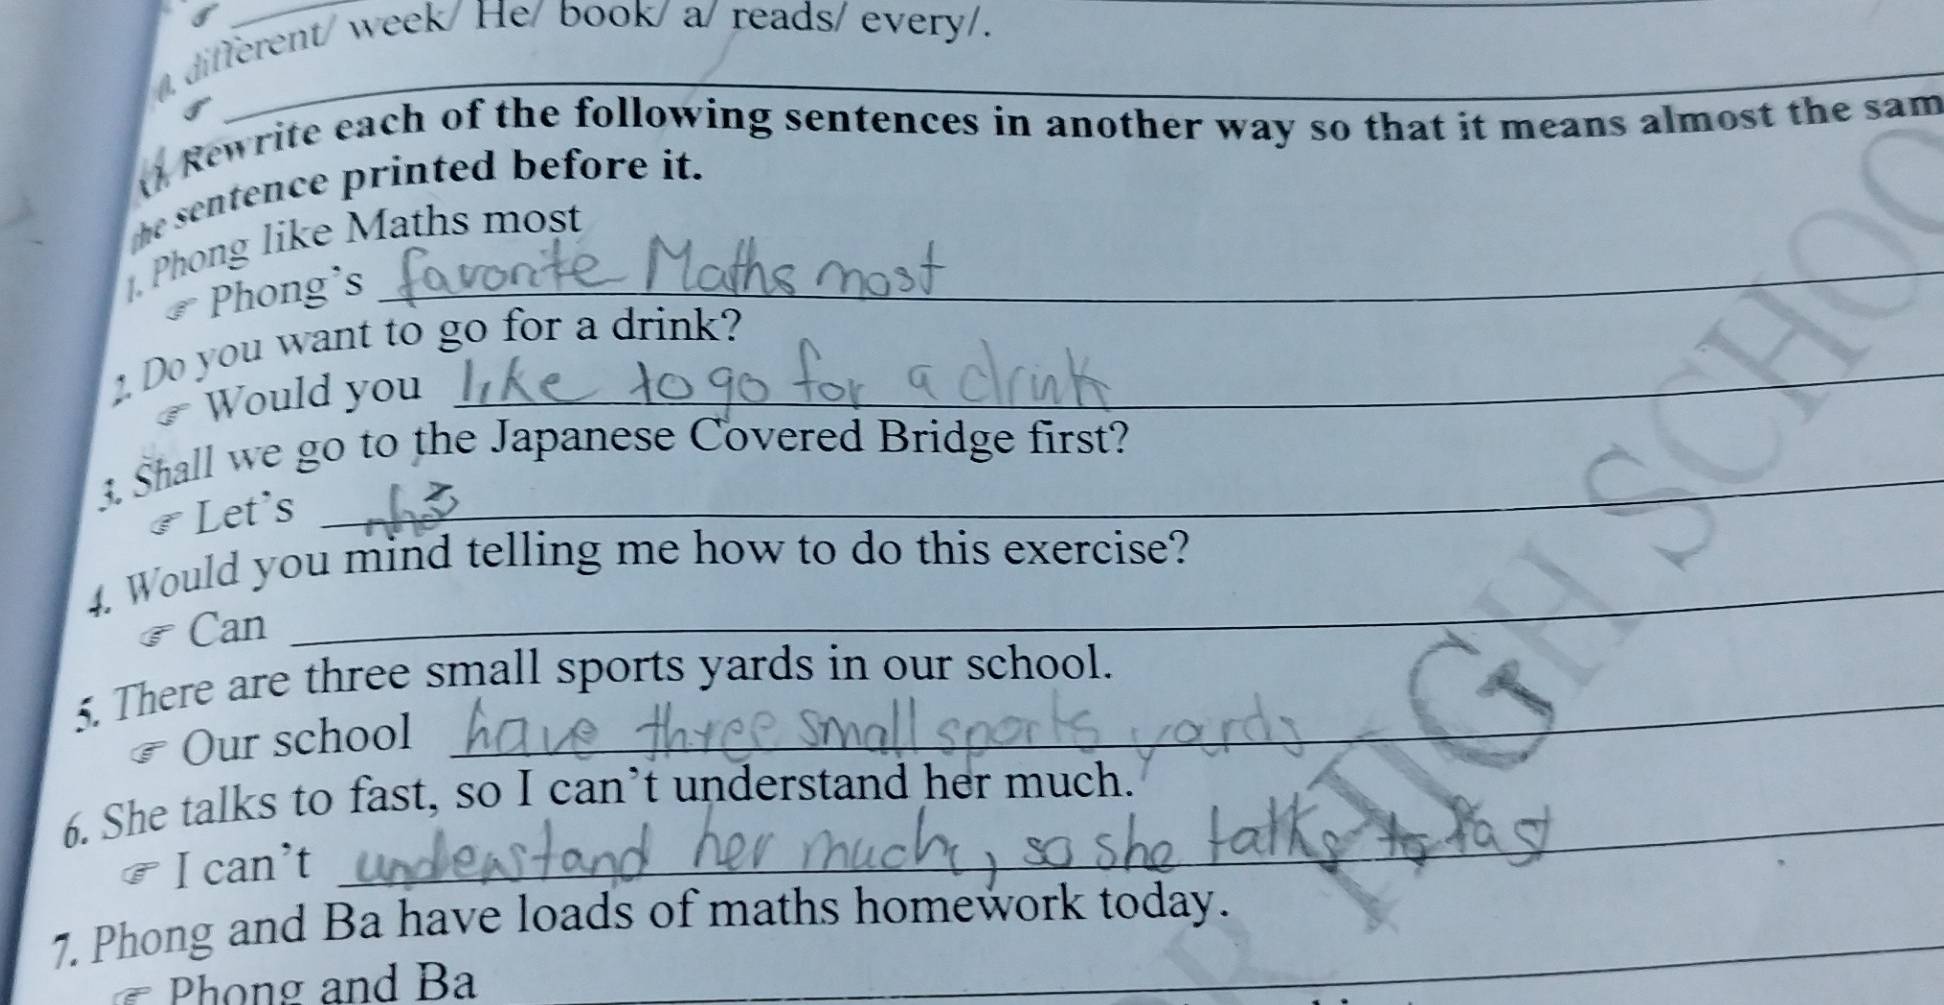 different/ week/ He/ book/ a/ reads/ every/.
Rewrite each of the following sentences in another way so that it means almost the sam
the sentence printed before it.
1. Phong like Maths most
Phong's favorite Maths most
2. Do you want to go for a drink?
Would you like to go for a drink
3. Shall we go to the Japanese Covered Bridge first?
Let's
4. Would you mind telling me how to do this exercise?
Can
5. There are three small sports yards in our school.
Our school have three small sports yards
6. She talks to fast, so I can't understand her much.
I can't understand her much, so she talks to fast
7. Phong and Ba have loads of maths homework today.
Phong and Ba
HIGH SCHOO